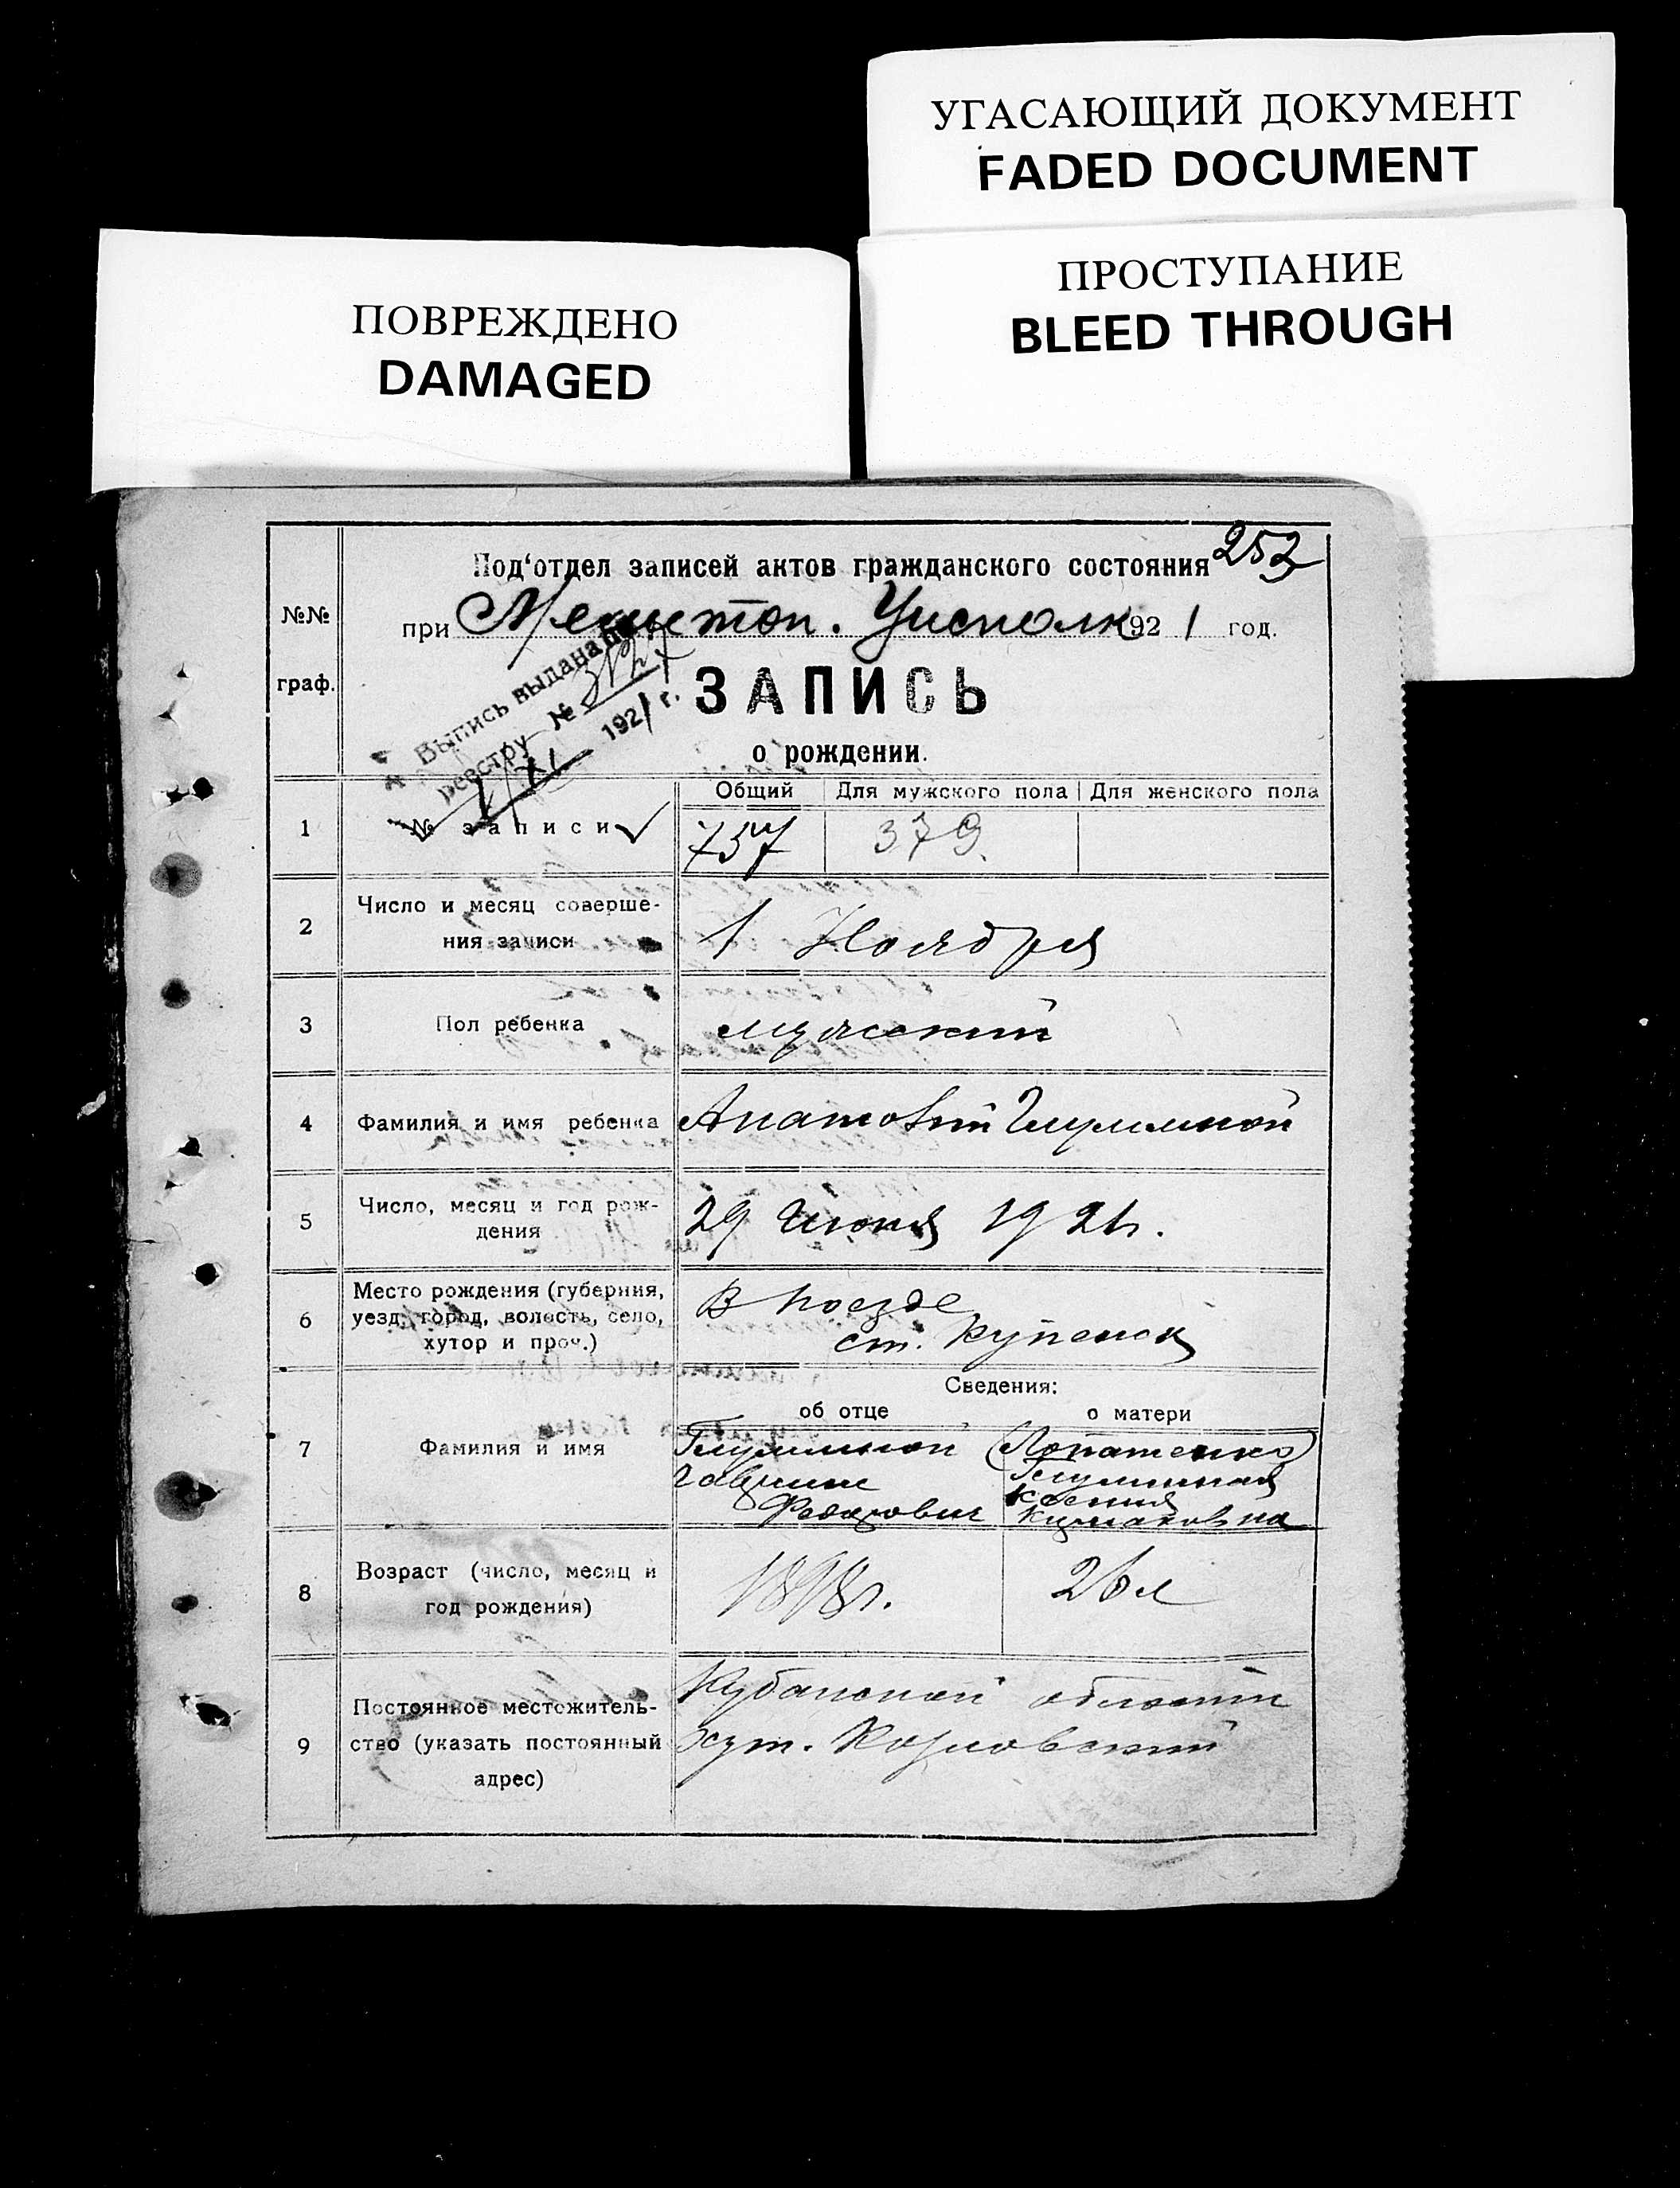 УГАСАЮЩИЙ ДОКУМЕНТ
FADED DOCUMENT
ПРОСТУПАНИЕ
BLEED THROUGH
ПОВРЕЖДЕНО
DAMAGED
253
Под‘отдел записей актов гражданского состояния
при Мелитоп. Уисполк 1921 год.
№№
граф.
Выпись выдана по
реестру №
1/XI 1921 г.
ЗАПИСЬ
о рождении.
Общий Для мужского пола Для женского пола
1 № записи 757 379.
2 Число и месяц соверше-
ния записи 1 Ноября
3 Пол ребенка мужской
4 Фамилия и имя ребенка Анатолий
5 Число, месяц и год рож-
дения 29 Июня 1921 г.
6 Место рождения (губерния,
уезд, город, волость, село,
хутор и проч.)
В поезде
ст. Купенск
Сведения:
об отце о матери
7 Фамилия и имя
Гавриил
Федорович
Ксения
8 Возраст (число, месяц и
год рождения) 1898 г. 26 л
9 Постоянное местожитель-
ство (указать постоянный
адрес)
Кубанской области
хут.